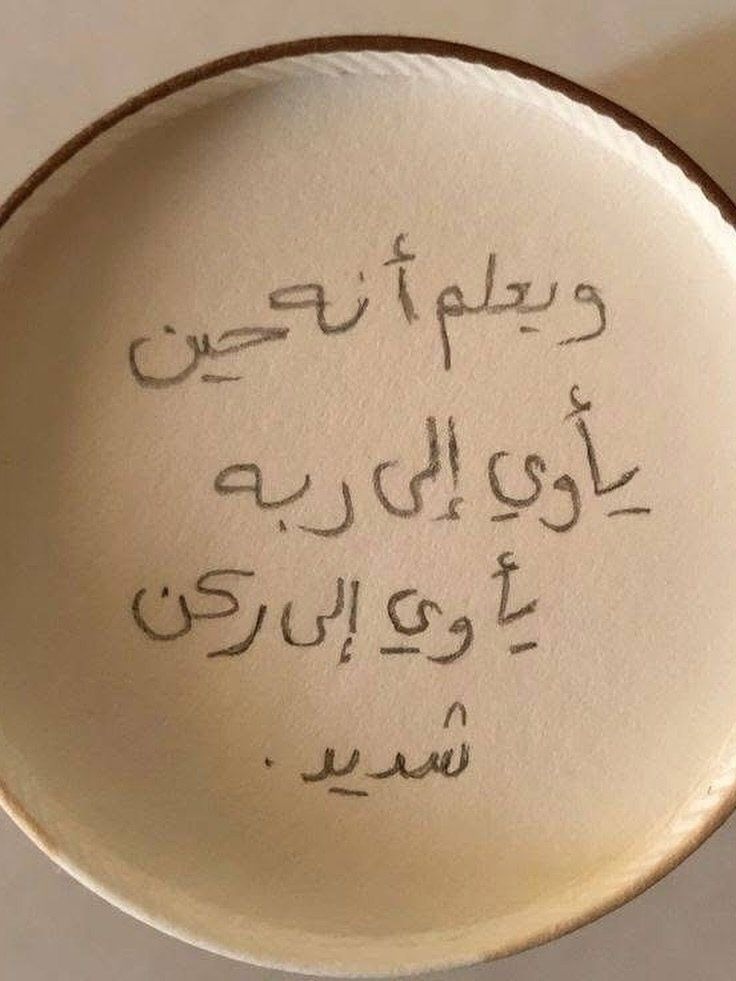 ويعلم أنه حين
يأوي إلى ربه
يأوي إلى ركن
شديد.